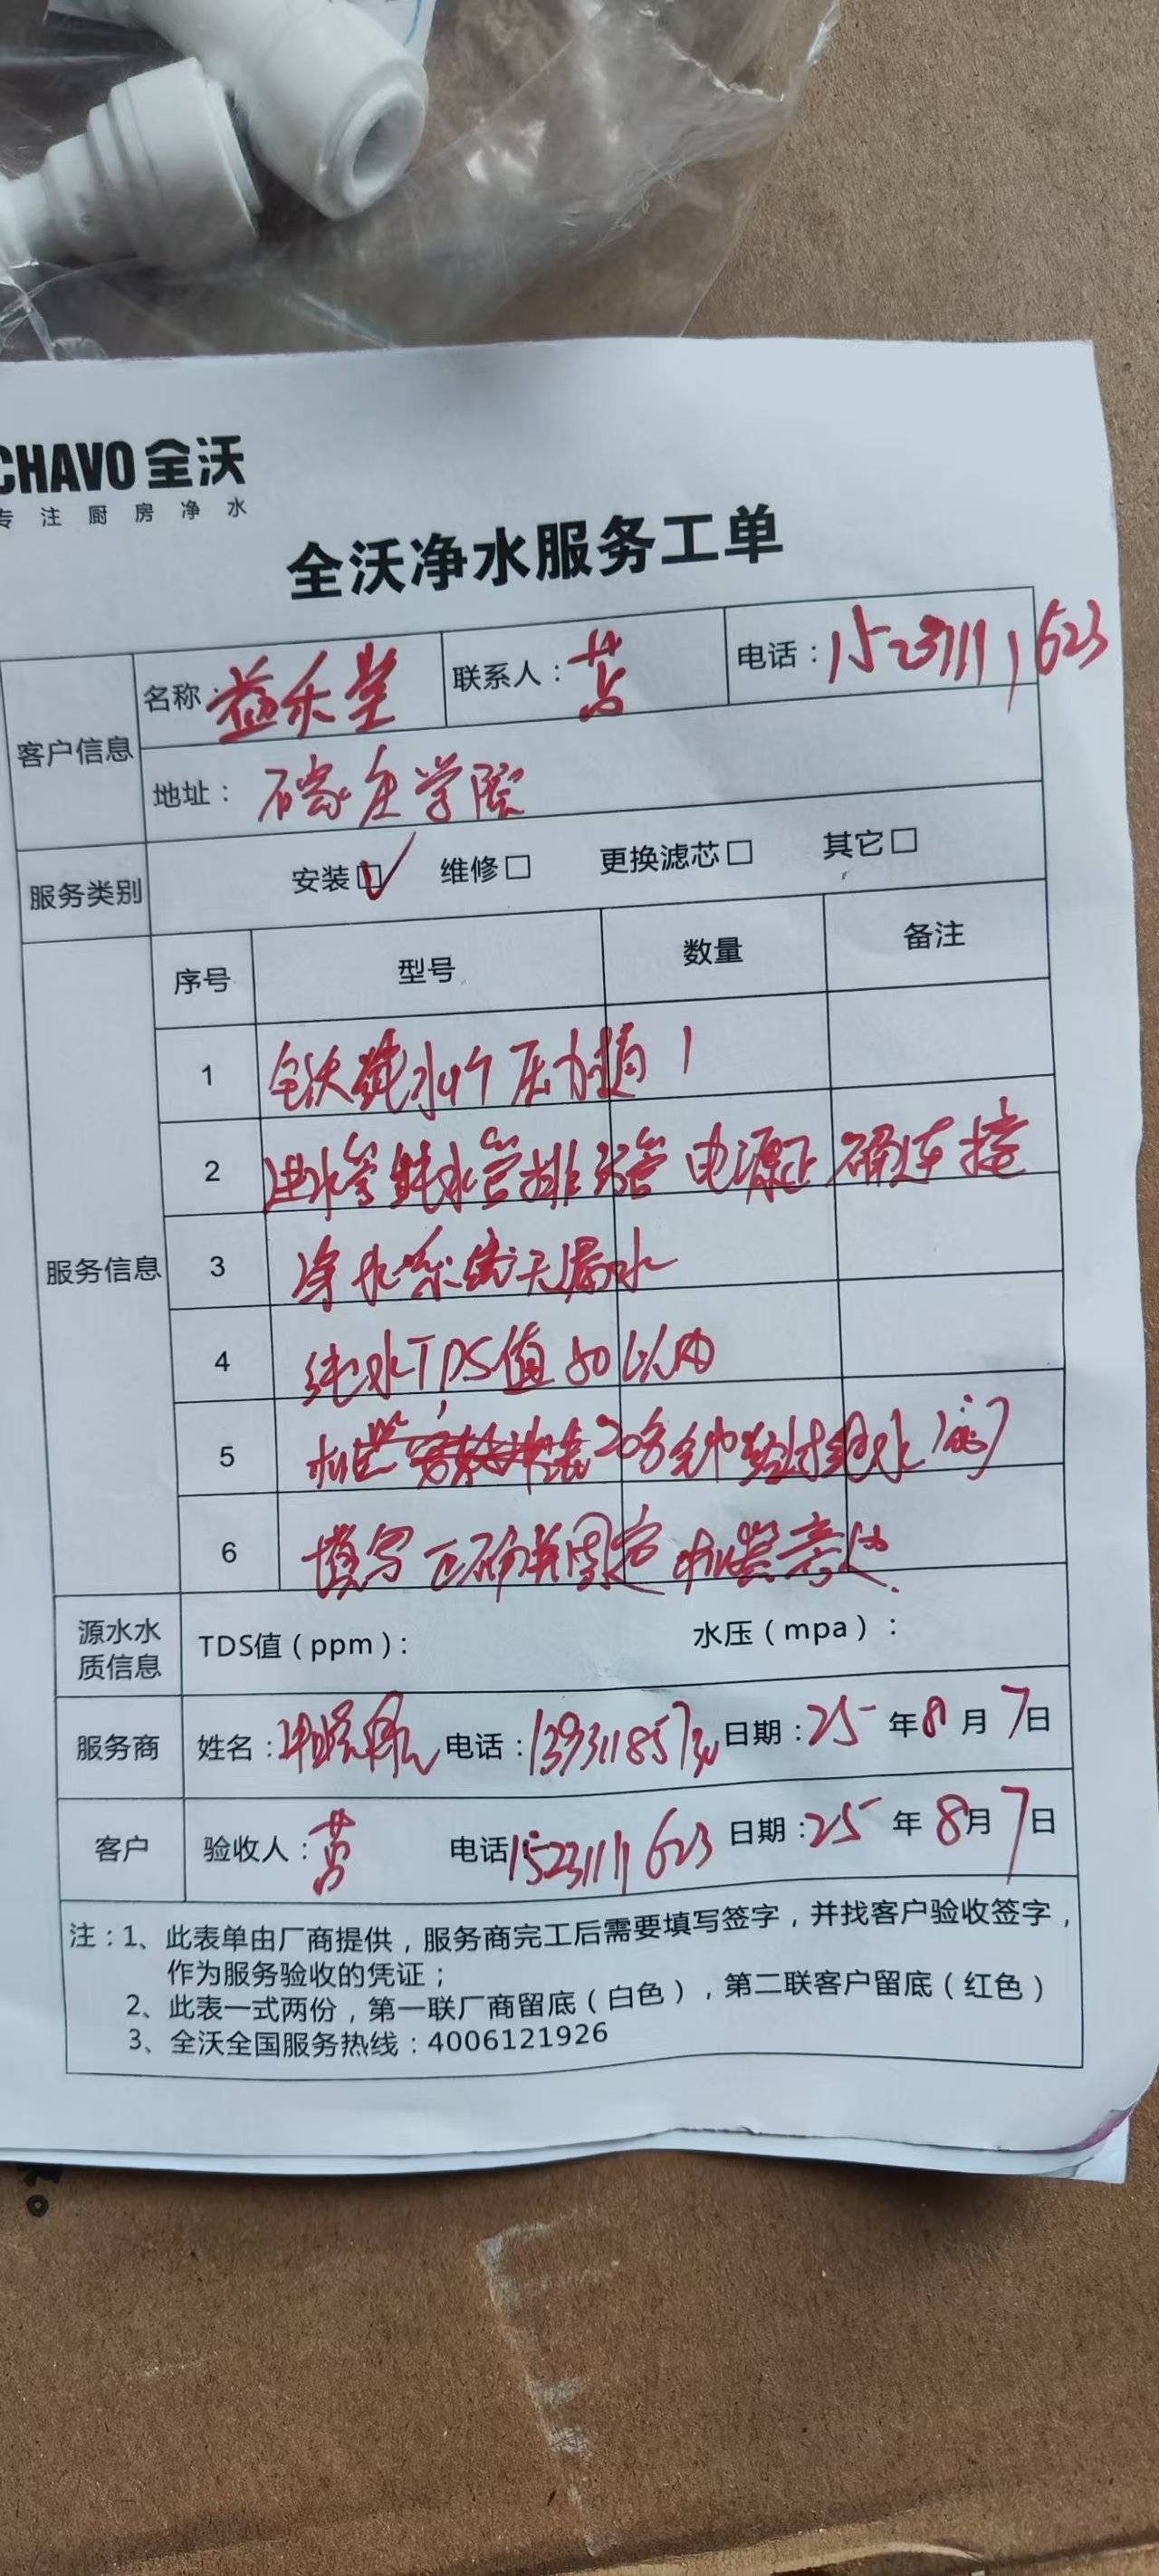 CHAVO 全沃
专注厨房净水
全沃净水服务工单
客户信息 名称：益禾堂 联系人： 电话：15231111623
地址：石家庄学院
服务类别 安装☑ 维修□ 更换滤芯□ 其它□
服务信息 序号 型号 数量 备注
1 全沃纯水 压力桶 1
2 进水管纯水管排污管 电源正确连接
3 净水系统无漏水
4 纯水TDS值50以内
5 20分钟 纯水
6 填写正确并固定机器旁边.
源水水质信息 TDS值（ppm）： 水压（mpa）：
服务商 姓名： 电话： 日期：25年8月7日
客户 验收人： 电话15231111623 日期：25年8月7日
注：1、此表单由厂商提供，服务商完工后需要填写签字，并找客户验收签字，
作为服务验收的凭证；
2、此表一式两份，第一联厂商留底（白色），第二联客户留底（红色）
3、全沃全国服务热线：4006121926